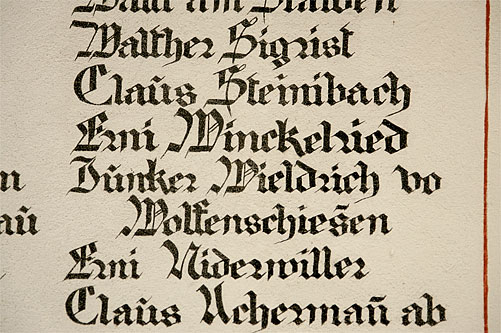 Walther Sigrist
Claũs Steinibach
Erni Winckelried
Jũnker Wieldrich vo
Wolfenschiesẽn
Erni Niderwiller
Claũs Achermañ ab